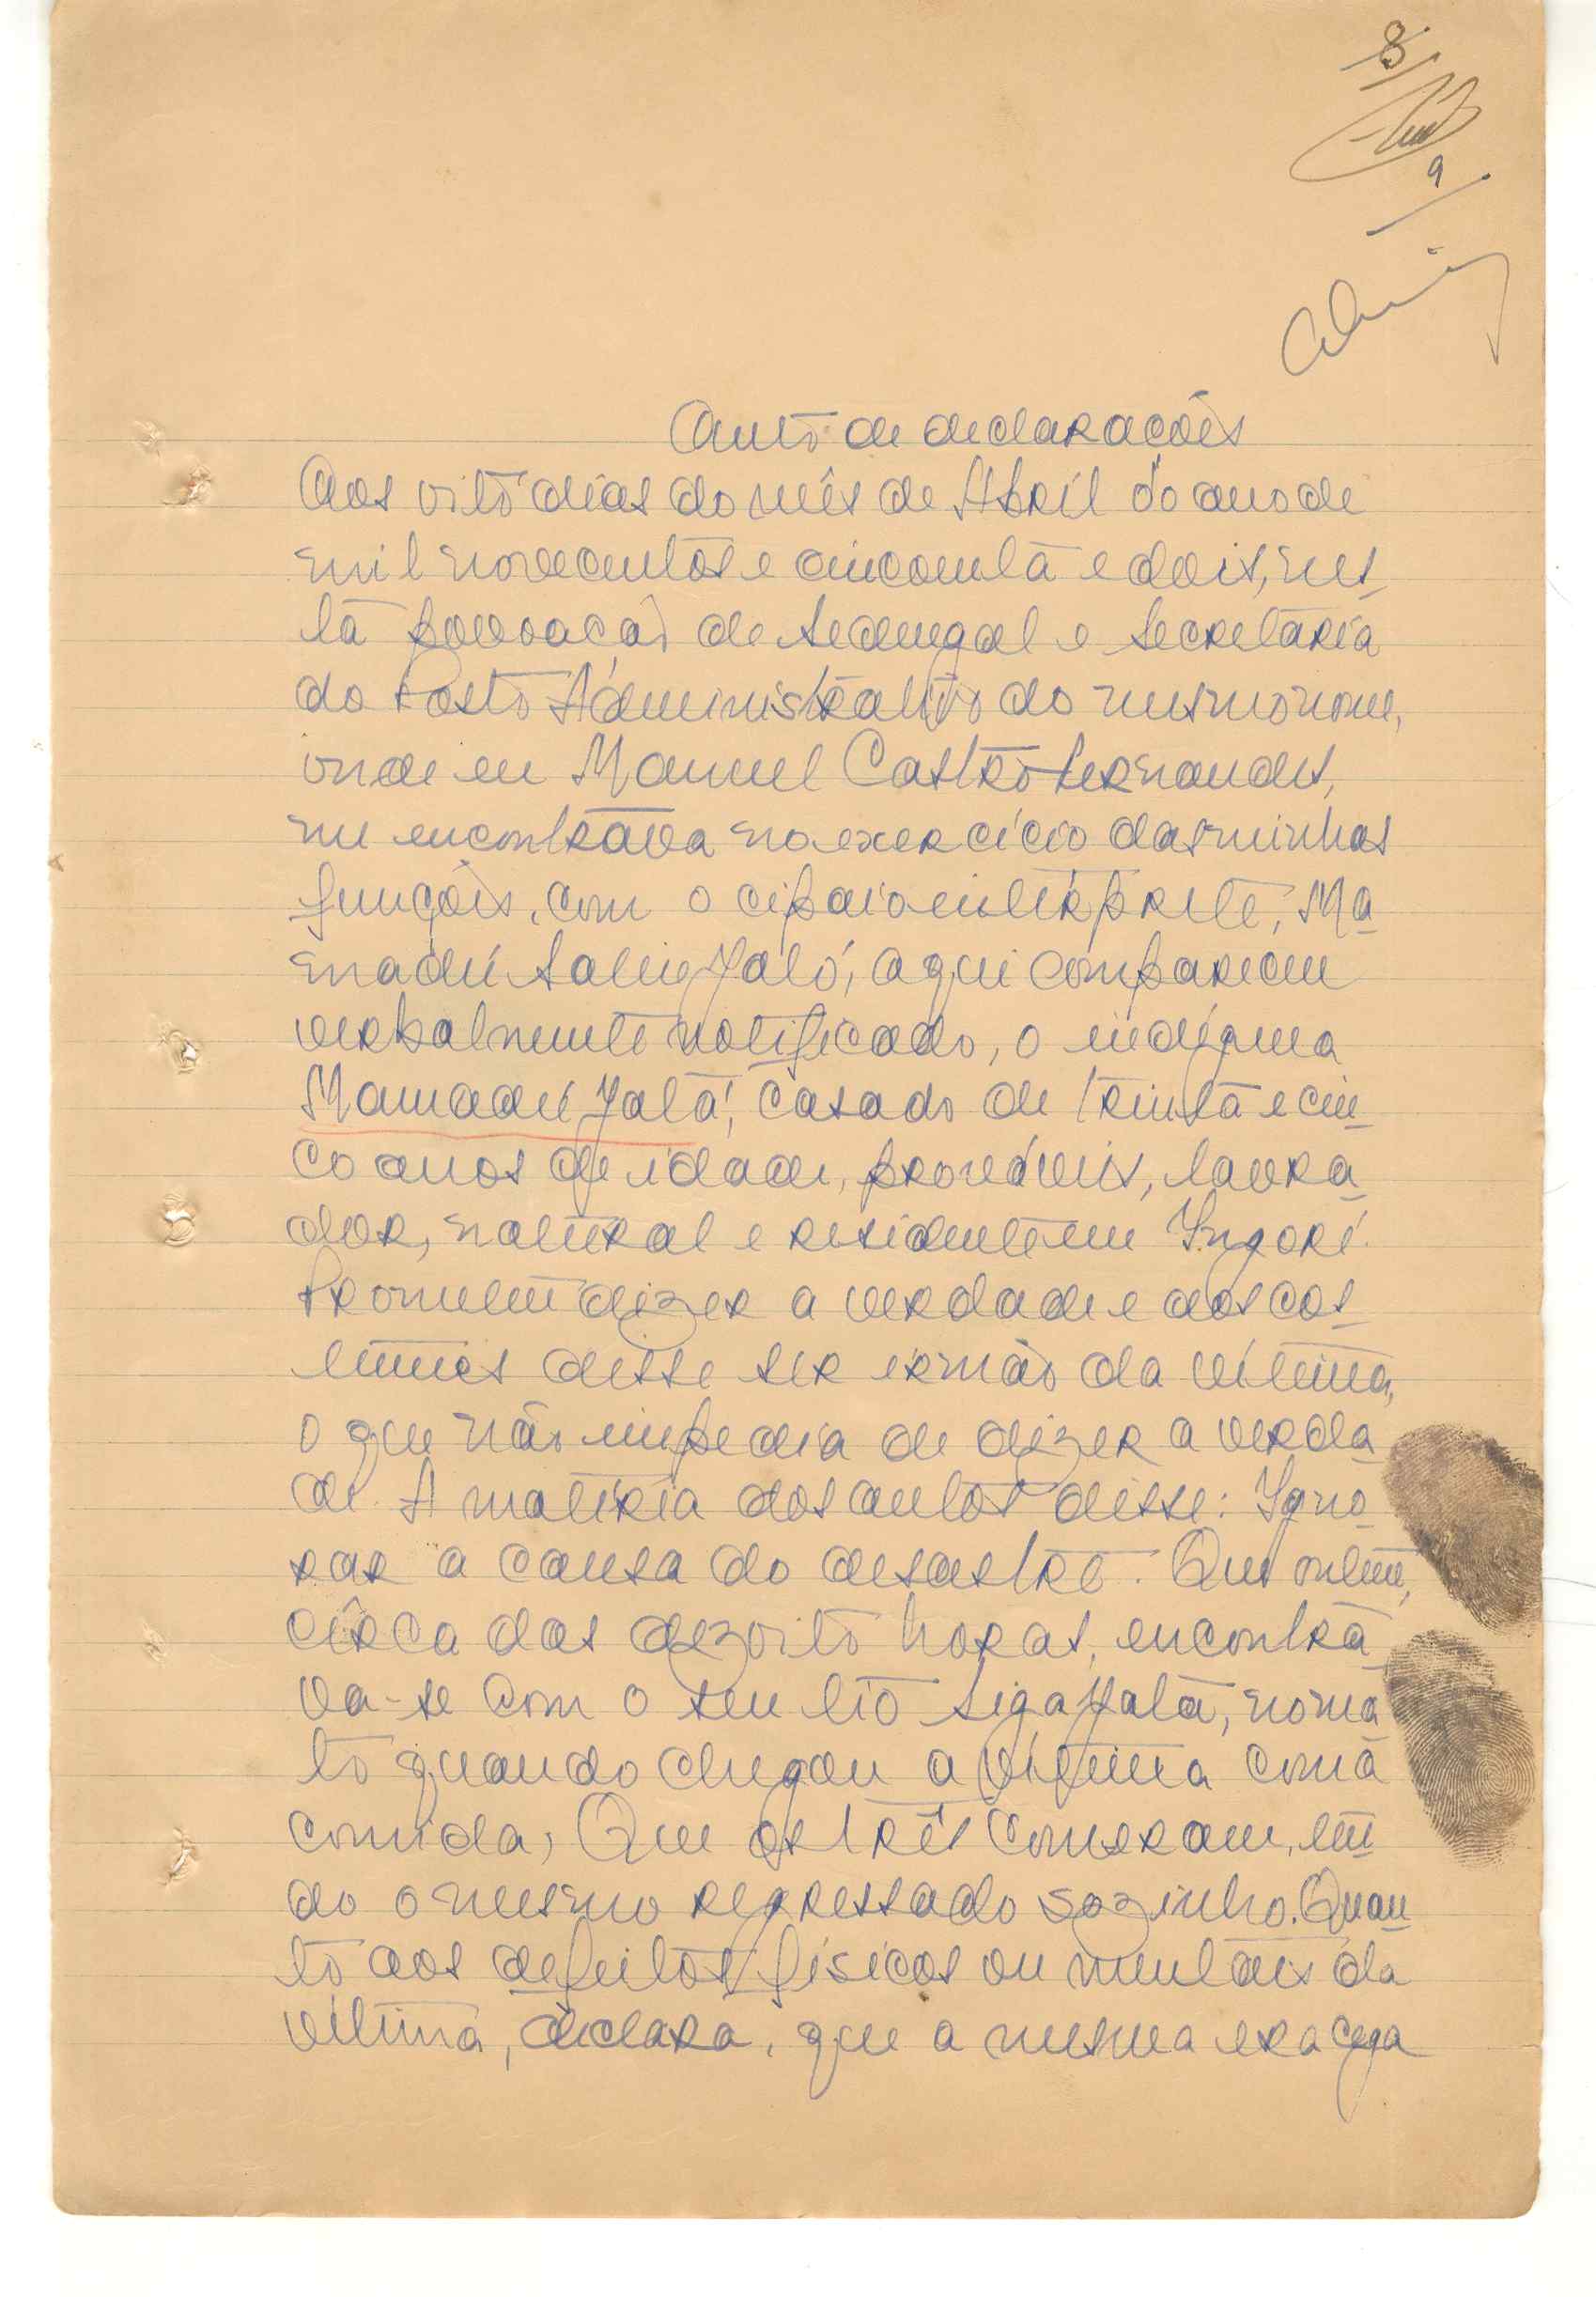 8
9
Auto de declarações
Aos oito dias do mês de Abril do ano de
mil novecentos e cincoenta e dois, nes-
ta povoação de Sedengal e Secretaria
do Posto Administrativo do mesmo nome,
onde eu Manuel Castro Fernandes,
me encontrava no exercício das minhas
funções, com o cipaio intérprete, Ma-
madú Saliu Jaló, aqui compareceu
verbalmente notificado, o indígena
Mamadú Jatá, casado de trinta e cin-
co anos de idade, prováveis, lavra-
dor, natural e residente em Ingoré.
Prometeu dizer a verdade e aos cos-
tumes disse ser irmão da vítima,
o que não impedia de dizer a verda-
de. A matéria dos autos disse: Igno-
rar a causa do desastre. Que ontem,
cêrca das dezoito horas, encontra-
va-se com o seu tio Siga Jatá, no ma-
to quando chegou a vítima com a
comida; Que os três comeram, ten-
do o mesmo regressado sozinho. Quan-
to aos defeitos físicos ou mentais da
vítima, declara, que a mesma era cega